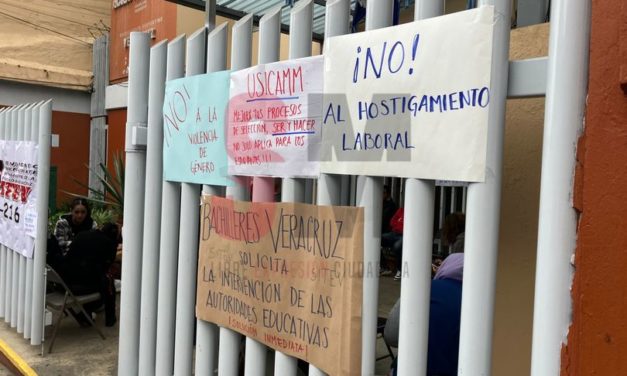 ¡NO!
A LA
VIOLENCIA
DE
GÉNERO
USICAMM
MEJORA TUS PROCESOS
DE SELECCIÓN, SER Y HACER
NO SOLO APLICA PARA LOS
ESTUDIANTES !!!
¡NO!
AL HOSTIGAMIENTO
LABORAL
BACHILLERES VERACRUZ
SOLICITA
LA INTERVENCIÓN DE LAS
AUTORIDADES EDUCATIVAS
¡SOLUCIÓN
INMEDIATA!
-216